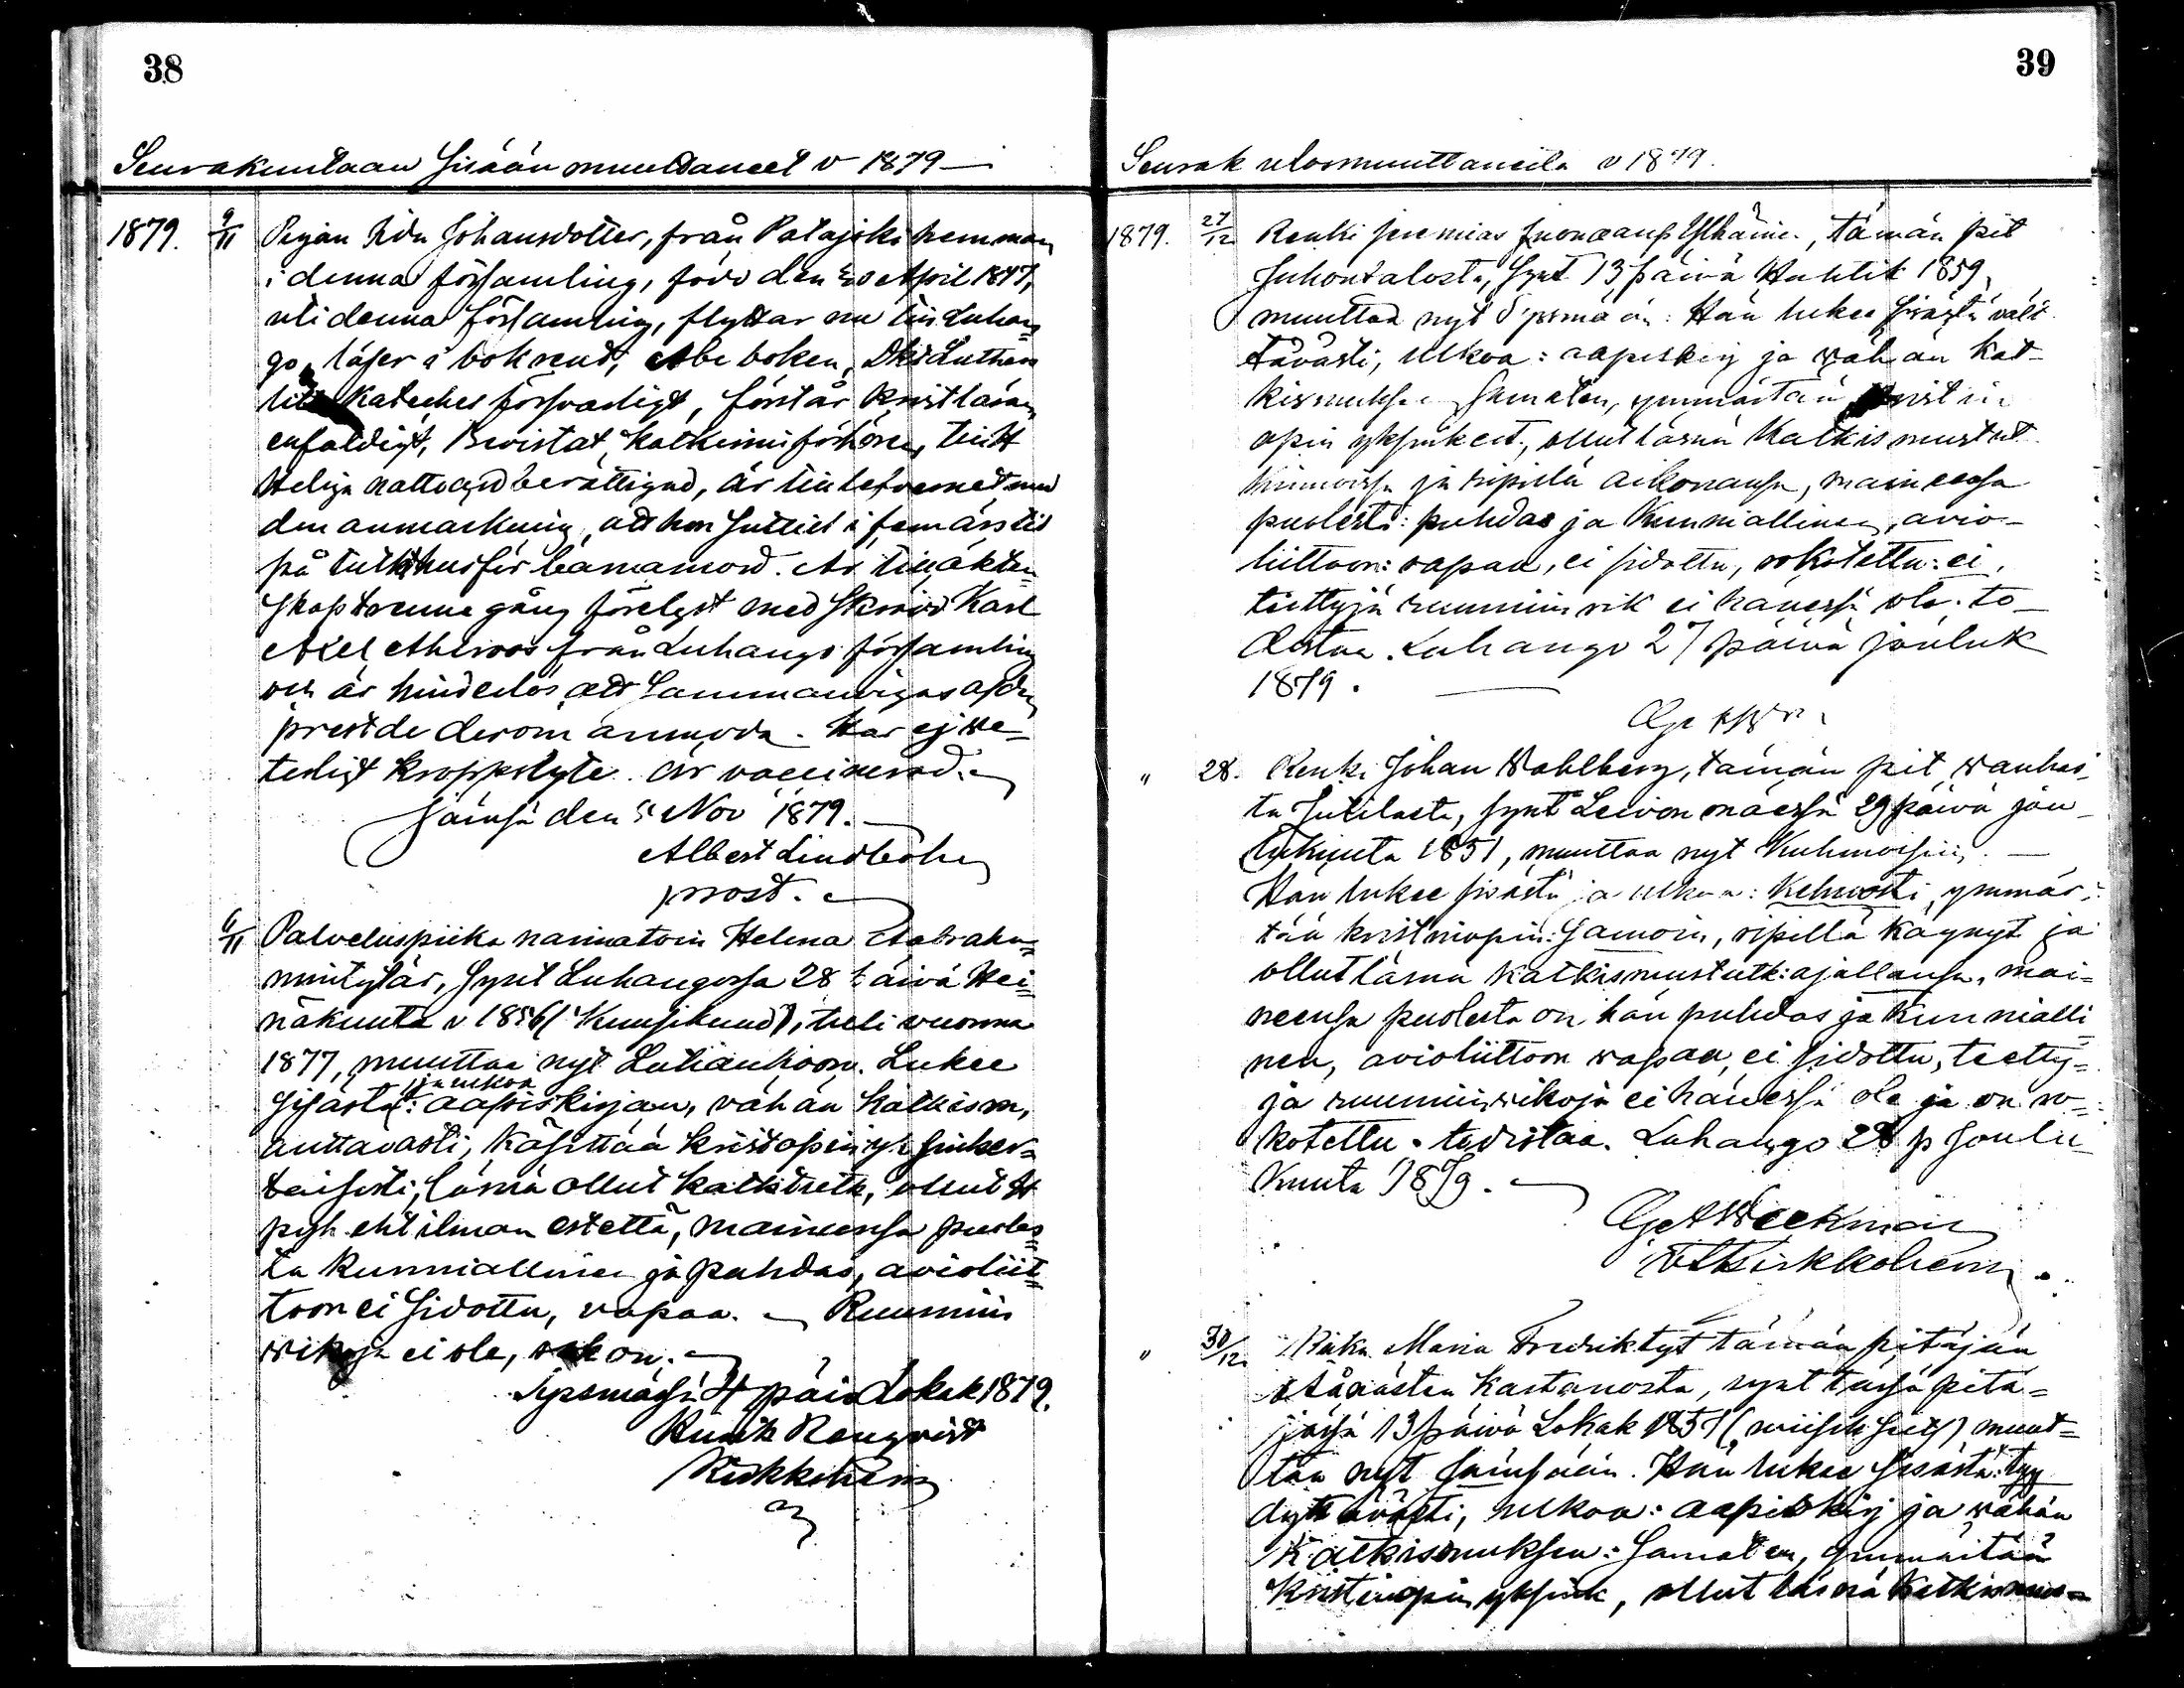 38
Seurakuntaan Sisään muuttaneet v 1879 —
1879. 9/11 Pigan Ida Johansdotter, från Patajoki hemman
i denna församling, född den 20 April 1847,
uti denna församling, flyttar nu till Luhan
go, läser i bok rent, Abc boken, Dr Luthers
lilla Kateches försvarligt, förstår kristläran
enfaldigt, Bevistat Katkismiförhören, till H
Heliga nattvard berättigad, är till lefvernet med
den anmärkning, att hon suttit i fem års tid
på tukthus för barnamord. Är till äkten-
skap trenne gång förelyst med Skrädd Karl
Axel Ahlroos från Luhango församling
och är hinderlös att sammanvigas af den
prest de derom anmoda. Har ej ve-
terligt kroppslyte. är vaccinerad.
Jämsä den 5 Nov 1879.
Albert Lindholm
prost.
6/11 Palveluspiika naimatoin Helena Aabraha-
mintytär, synt Luhangossa 28 päivä Hei-
näkuuta v 1856 (Kuusikuud), tuli vuonna
1877, muuttaa nyt Luhankoon. Lukee
ja ulkoa
Sisästä: aapiskirjan, vähän Katkism,
auttavasti, Käsittää kristopin yksinker-
taisesti, läsnä ollut Katkitutk, ollut H
pyh. eht ilman estettä, maineensa puoles-
ta Kunniallinen ja puhdas, avioliit-
toon ei sidottu, vapaa. Ruumiin
wikoja ei ole, rok on.
Sysmässä 4 päiv Lokak 1879.
Renqvist
Kirkkoherra
39
Seurak ulosmuuttaneita v 1879.
1879. 27/12 Renki Jeremias, tämän pit
Juhontalosta, synt 13 päivä Huhtik 1859,
muuttaa nyt Sysmään. Hän lukee sisästä vält
tävästi, ulkoa: aapiskirj ja vähän Kat-
kismuksen Samaten, ymmärtää kristin
opin yksinkert, ollut läsnä Katkismustut
kinnoissa ja ripillä aikonansa, maineensa
puolesta: puhdas ja Kunniallinen, avio-
liittoon: vapaa, ei sidottu, rokotettu: ei.
tiettyjä ruumiin vik ei hänessä ole. to-
distaa. Luhango 27 päivä jouluk
1879.
" 28. Renki Johan Wahlberg, tämän pit Wanhas-
ta Jutilasta, synt Leivonmäessä 29 päivä jou-
lukuuta 1851, muuttaa nyt Kuhmoisiin. —
Hän lukee sisästä ja ulkoa: Kelwosti, ymmär-
tää kristinopin: Samoin, ripillä käynyt ja
ollut läsnä Katkismustutk: ajallansa, mai-
neensa puolesta on hän puhdas ja Kunnialli
nen, avioliittoon wapaa, ei sidottu, tietty-
jä ruumiin wikoja ei hänessä ole ja on ro-
kotettu. todistaa. Luhango 28 p Joulu
Kuuta 1879.
Weckman
vt Kirkkoherra.
" 30/12 Piika Maria Fredriktyt tämän pitäjän
Kartanosta, synt tässä pitä-
jässä 13 päivä Lokak 1857 (wiisik seits) muut-
taa nyt Jämsään. Hän lukee sisästä: tyy
dyttävästi, ulkoa: aapiskirj ja wähän
Katkismuksen: Samaten, ymmärtää
Kristinopin yksink, ollut läsnä Katkismus-